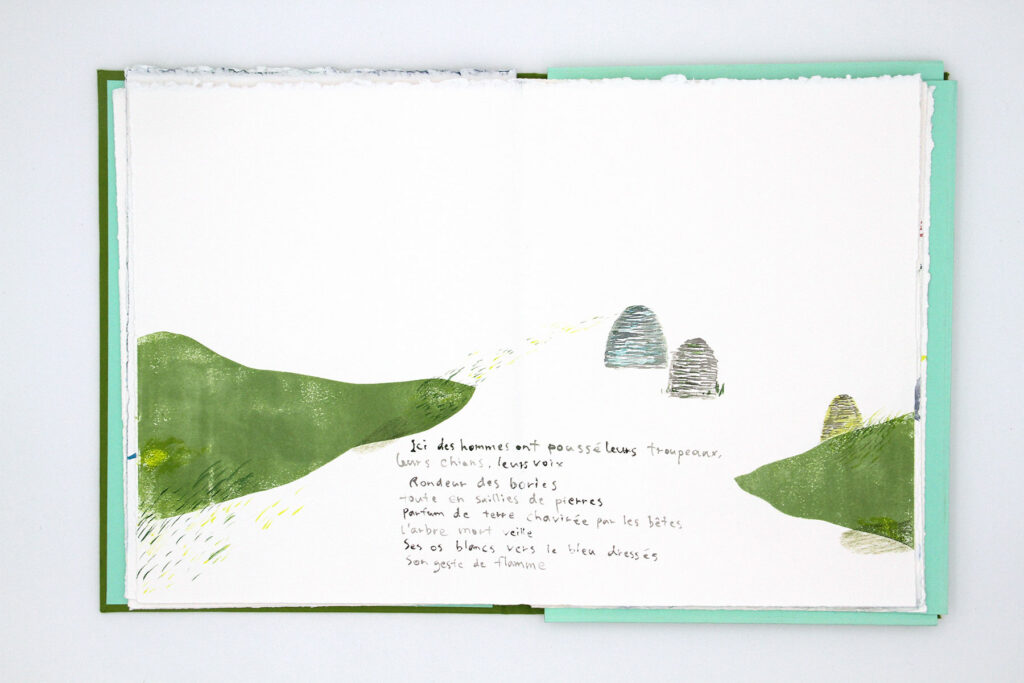 Ici des hommes ont poussé leurs troupeaux,
leurs chiens, leurs voix
Rondeur des bories
toute en saillies de pierres
Parfum de terre chavirée par les bêtes
L'arbre mort veille
Ses os blancs vers le bleu dressés
Son geste de flamme